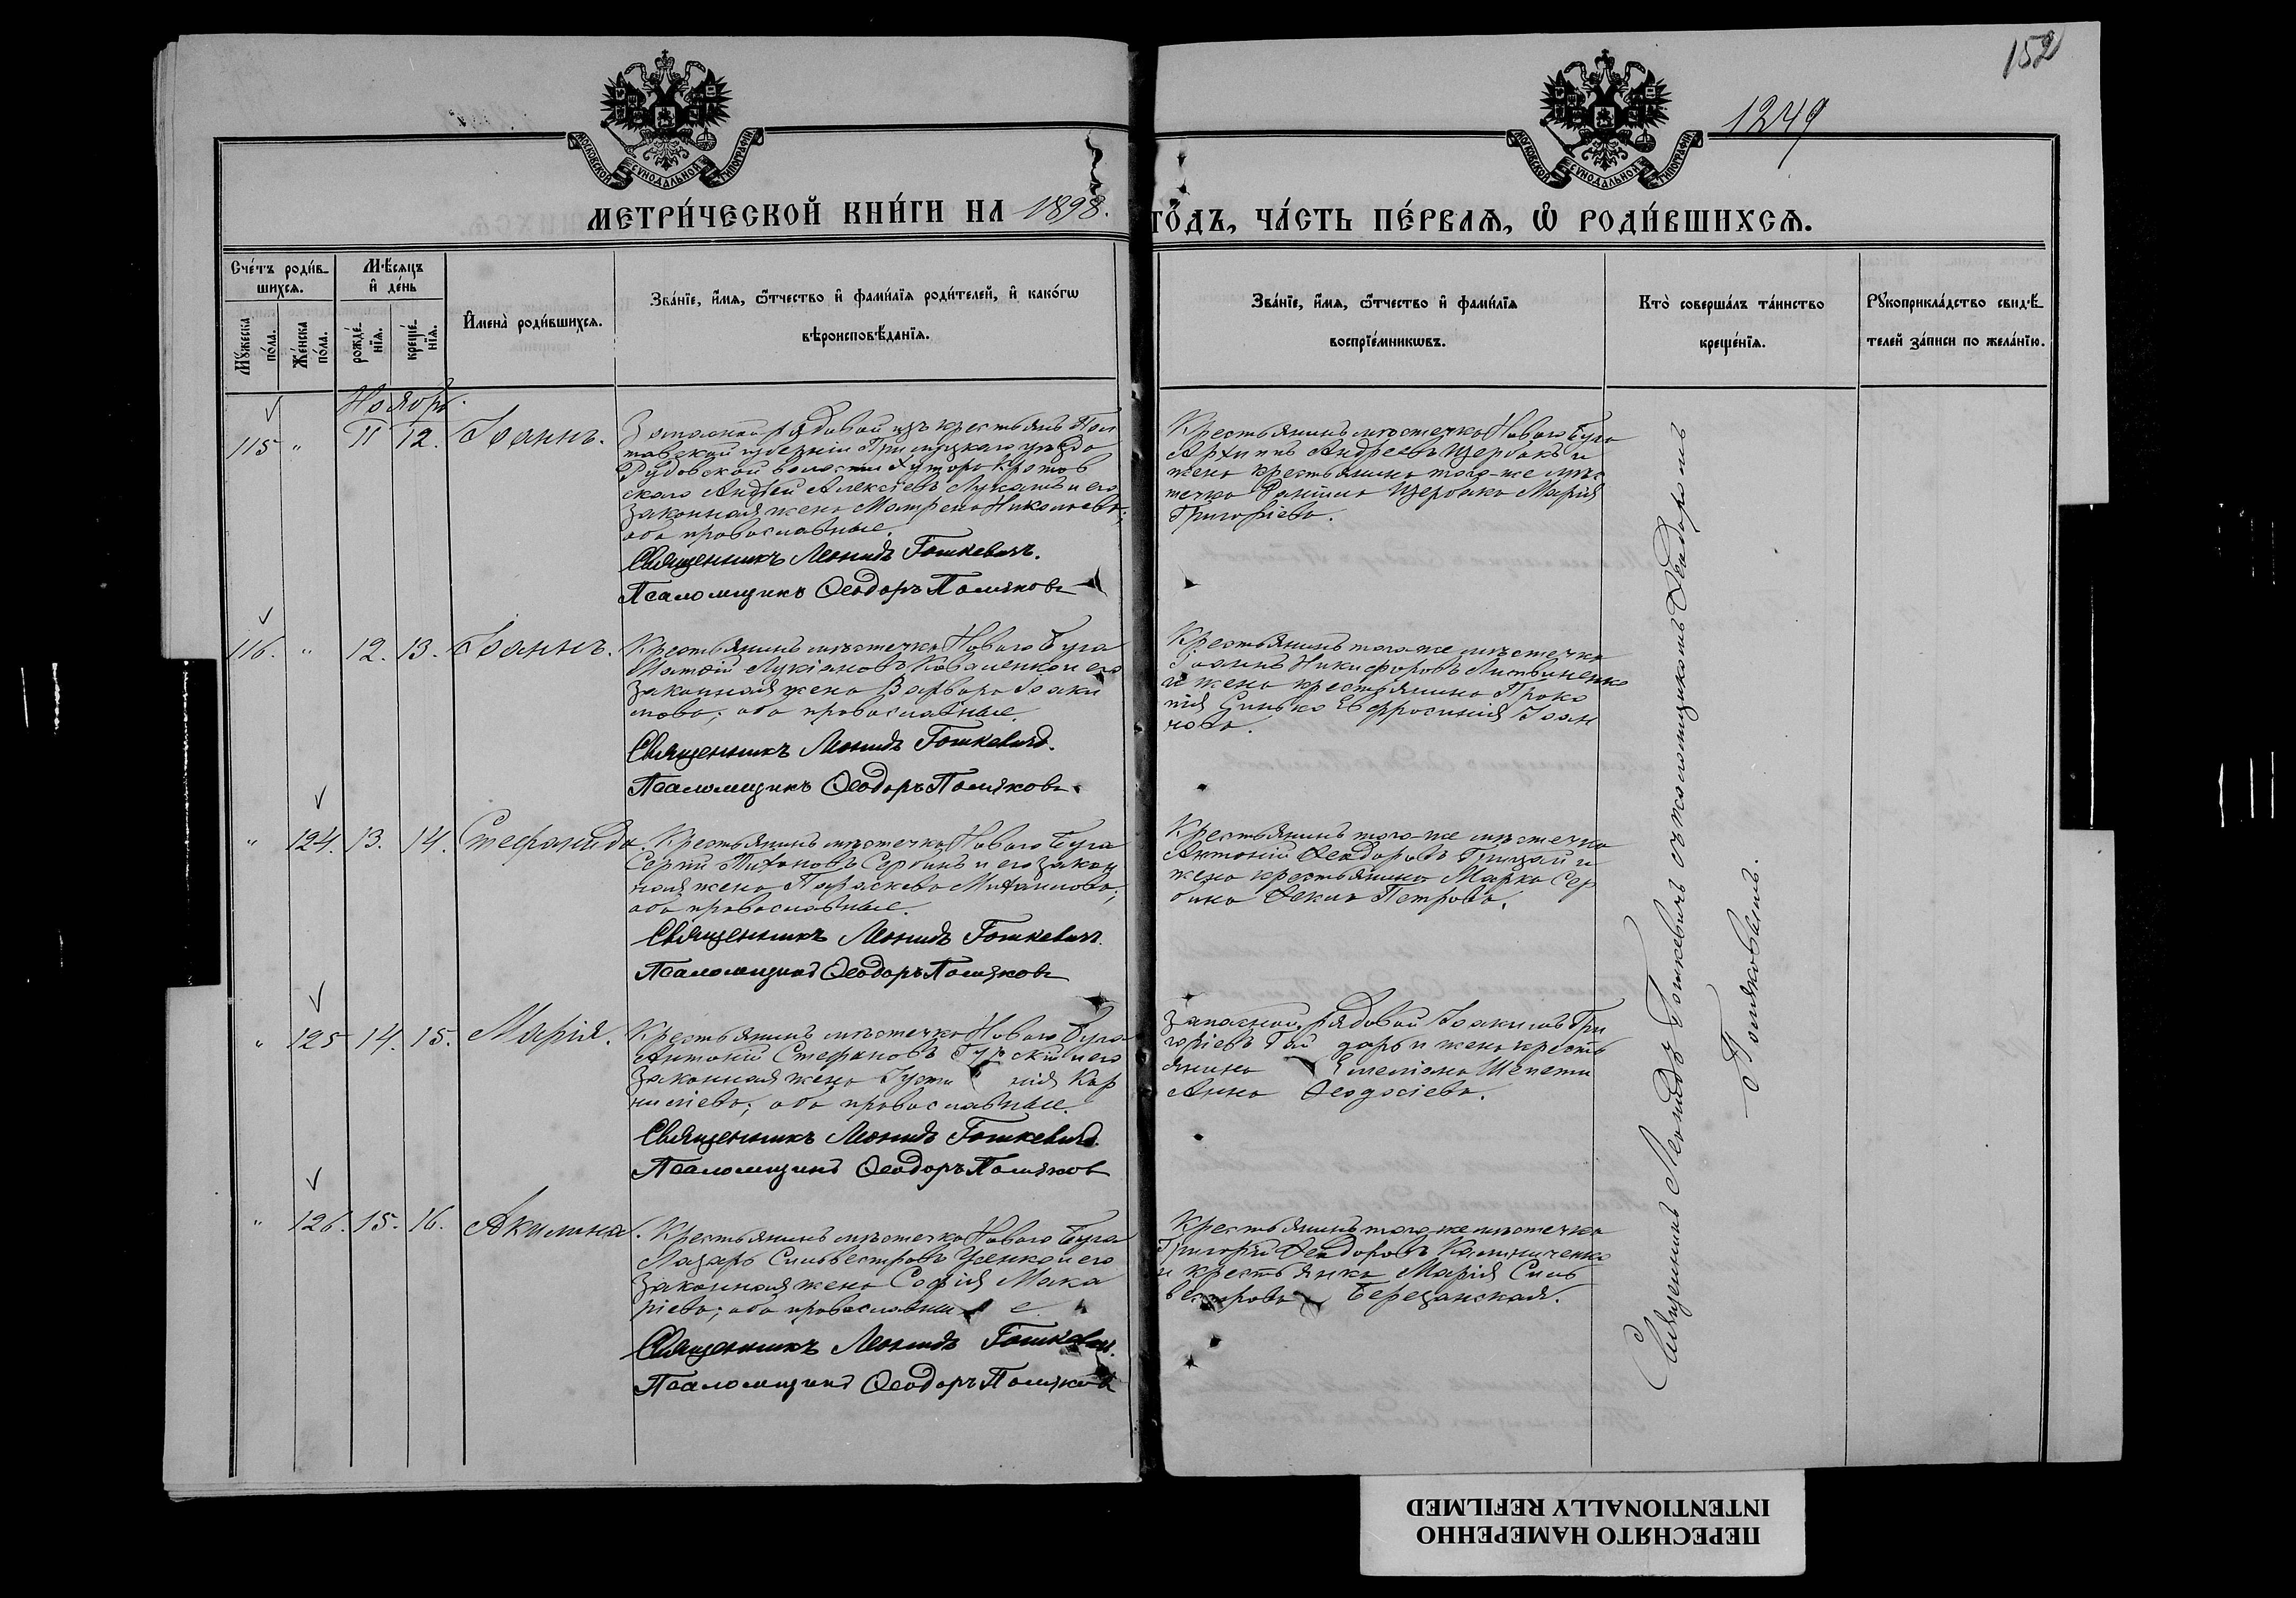 152
1249
МОСКОВСКОЙ СѴНОДАЛЬНОЙ ТИПОГРАФІИ
МОСКОВСКОЙ СѴНОДАЛЬНОЙ ТИПОГРАФІИ
МЕТРИ́ЧЕСКОЙ КНИ́ГИ НА 1898.
ГО́ДЪ, ЧА́СТЬ ПЕ́РВАѦ, Ѡ҆ РОДИ́ВШИХСѦ.
Сче́тъ роди́в-
шихсѧ.
Мꙋ́жеска
по́ла.
Же́нска
по́ла.
М́ѣсѧцъ
и҆ де́нь
рожде́-
нїѧ.
креще́-
нїѧ.
И҆мена̀ роди́вшихсѧ.
Зва́нїе, и҆́мѧ, ѻ҆́тчество и҆ фами́лїѧ роди́телей, и҆ како́гѡ
вѣроисповѣ́данїѧ.
Зва́нїе, и҆́мѧ, ѻ҆́тчество и҆ фами́лїѧ
воспрїе́мникѡвъ.
Кто̀ соверша́лъ та́инство
креще́нїѧ.
Рꙋкоприкла́дство свидѣ́-
телей за́писи по жела́нїю.
Ноябрь.
115 " 11 12. Іоаннъ.
Запасной рядовой изъ крестьянъ Пол
тавской губерніи Прилуцкаго уѣзда
Рудовской волости хутора Кротов
скаго Андрей Алексіевъ Лукашъ и его
законная жена Матрена Николаева;
оба православные.
Священникъ Леонидъ Гошкевичъ.
Псаломщикъ Ѳеодоръ Поляковъ
Крестьянинъ мѣстечка Новаго Буга
Архиппъ Андреевъ Щербакъ и
жена крестьянина того-же мѣс
течка Даніила Щербака Марія
Григоріева.
116. " 12. 13. Іоаннъ.
Крестьянинъ мѣстечка Новаго Буга
Матѳій Лукіановъ Коваленко и его
законная жена Варвара Іоаки
мова; оба православные.
Священникъ Леонидъ Гошкевичъ.
Псаломщикъ Ѳеодоръ Поляковъ.
Крестьянинъ того-же мѣстечка
Іоаннъ Никифоровъ Литвиненко
и жена крестьянина Проко
пія Синько Евфросинія Іоан
нова.
" 124. 13. 14. Стефанида.
Крестьянинъ мѣстечка Новаго Буга
Сергій Тихоновъ Сербинъ и его закон
ная жена Параскева Михаилова;
оба православные.
Священникъ Леонидъ Гошкевичъ.
Псаломщикъ Ѳеодоръ Поляковъ
Крестьянинъ того-же мѣстечка
Антоній Ѳеодоровъ Грицай и
жена крестьянина Марка Сер
бина Ѳекла Петрова.
" 125 14. 15. Марія.
Крестьянинъ мѣстечка Новаго Буга
Антоній Стефановъ Гурскій и его
законная жена Іусти нія Кор
ниліева; оба православные.
Священникъ Леонидъ Гошкевичъ.
Псаломщикъ Ѳеодоръ Поляков
Запасной рядовой Іоакимъ Гри
горіевъ Гай даръ и жена кресть
янина Емеліана Шепети
Анна Ѳеодосіева.
" 126. 15. 16. Акилина.
Крестьянинъ мѣстечка Новаго Буга
Лазарь Сильвестровъ Усенко и его
законная жена Софія Мака
ріева; оба православны е
Священникъ Леонидъ Гошкевич.
Псаломщикъ Ѳеодоръ Поляковъ
Крестьянинъ того же мѣстечка
Григорій Ѳеодоровъ Калиниченко
и крестьянка Марія Силь
вестрова Березанская.
Священникъ Леонидъ Гошкевичъ съ псаломщикомъ Ѳеодоромъ
Поляковымъ.
ПЕРЕСНЯТО НАМЕРЕННО
INTENTIONALLY REFILMED